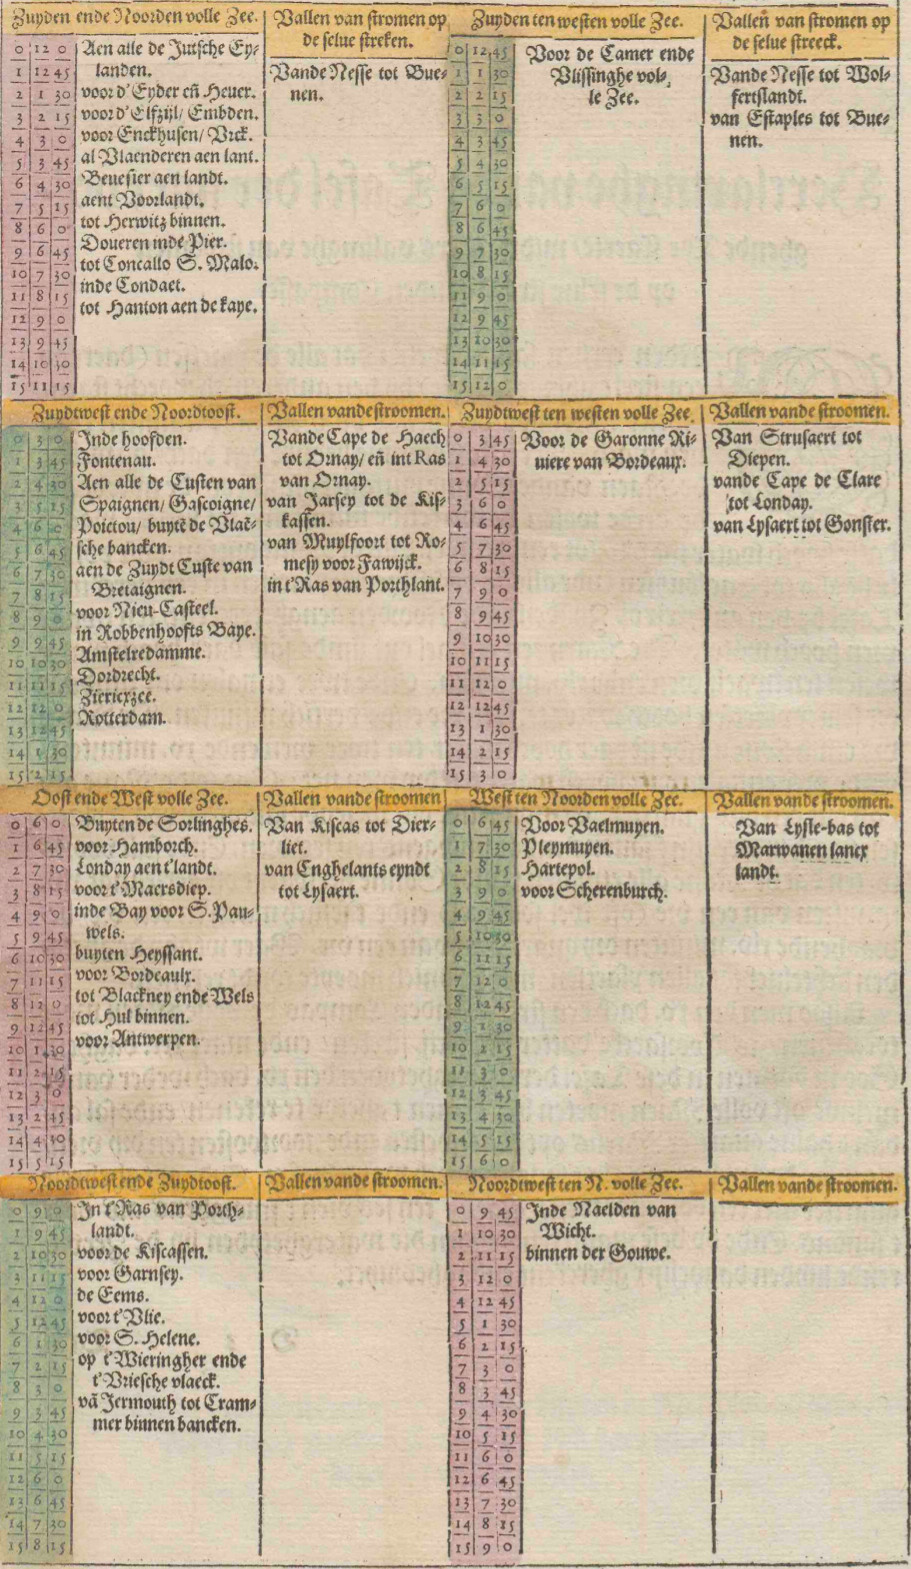 Zuyden ende Noorden volle Zee.
0 12 0
1 12 45
2 1 30
3 2 15
4 3 0
5 3 45
6 4 30
7 5 15
8 6 0
9 6 45
10 7 30
11 8 15
12 9 0
13 9 45
14 10 30
15 11 15
Aen alle de Jutsche Ey-
landen.
voor d'Eyder eñ Hever.
voor d'Elfzijl/ Embden.
voor Enckhusen/ Urck.
al Vlaenderen aen lant.
Bevesier aen landt.
aent Voorlandt.
tot Herwitz binnen.
Doveren inde Pier.
tot Concallo S. Malo.
inde Condaet.
tot Hanton aen de kaye.
Vallen van stromen op
de selve streken.
Vande Nesse tot Bue-
nen.
Zuyden ten westen volle Zee.
0 12 45
1 1 30
2 2 15
3 3 0
4 3 45
5 4 30
6 5 15
7 6 0
8 6 45
9 7 30
10 8 15
11 9 0
12 9 45
13 10 30
14 11 15
15 12 0
Voor de Camer ende
Vlissinghe vol-
le Zee.
Vallen van stromen op
de selve streeck.
Vande Nesse tot Wol-
fertslandt.
van Estaples tot Bue-
nen.
Zuydtwest ende Noordtoost.
0 3 0
1 3 45
2 4 30
3 5 15
4 6 0
5 6 45
6 7 30
7 8 15
8 9 0
9 9 45
10 10 30
11 11 15
12 12 0
13 12 45
14 1 30
15 2 15
Inde hoofden.
Fontenau.
Aen alle de Custen van
Spaignen/ Gascoigne/
Poictou/ buytẽ de Vlaē-
sche bancken.
aen de Zuydt Custe van
Bretaignen.
voor Nieu-Casteel.
in Robbenhoofts Baye.
Amstelredamme.
Dordrecht.
Zierixzee.
Rotterdam.
Vallen vande stroomen.
Vande Cape de Haech
tot Ornay/ eñ int Ras
van Ornay.
van Jarsey tot de Kis-
kassen.
van Muylfoort tot Ro-
mesy voor Fawijck.
in t'Ras van Porthlant.
Zuydtwest ten westen volle Zee.
0 3 45
1 4 30
2 5 15
3 6 0
4 6 45
5 7 30
6 8 15
7 9 0
8 9 45
9 10 30
10 11 15
11 12 0
12 12 45
13 1 30
14 2 15
15 3 0
Voor de Garonne Ri-
viere van Bordeaux.
Vallen vande stroomen.
Van Strusaert tot
Diepen.
vande Cape de Clare
tot Londay.
van Lysaert tot Gonster.
Oost ende West volle Zee.
0 6 0
1 6 45
2 7 30
3 8 15
4 9 0
5 9 45
6 10 30
7 11 15
8 12 0
9 12 45
10 1 30
11 2 15
12 3 0
13 2 45
14 4 30
15 5 15
Buyten de Sorlinghes.
voor Hamborch.
Londay aen t'landt.
voor t'Maersdiep.
inde Bay voor S. Pau-
wels.
buyten Heyssant.
voor Bordeaulx.
tot Blackney ende Wels
tot Hul binnen.
voor Antwerpen.
Vallen vande stroomen
Van Kiscas tot Dier-
liet.
van Enghelants eyndt
tot Lysaert.
West ten Noorden volle Zee.
0 6 45
1 7 30
2 8 15
3 9 0
4 9 45
5 10 30
6 11 15
7 12 0
8 12 45
9 1 30
10 2 15
11 3 0
12 3 45
13 4 30
14 5 15
15 6 0
Voor Vaelmuyen.
Pleymuyen.
Hartepol.
voor Scherenburch.
Vallen vande stroomen.
Van Lysle-bas tot
Marwanen lancx
landt.
Noordtwest ende Zuydtoost.
0 9 0
1 9 45
2 10 30
3 11 15
4 12 0
5 12 45
6 1 30
7 2 15
8 3 0
9 3 45
10 4 30
11 5 15
12 6 0
13 6 45
14 7 30
15 8 15
In t'Ras van Porth-
landt.
voor de Kiscassen.
voor Garnsey.
de Eems.
voor t'Vlie.
voor S. Helene.
op t'Wieringher ende
t'Vriesche vlaeck.
vã Jermouth tot Cram-
mer binnen bancken.
Vallen vande stroomen.
Noordtwest ten N. volle Zee.
0 9 45
1 10 30
2 11 15
3 12 0
4 12 45
5 1 30
6 2 15
7 3 0
8 3 45
9 4 30
10 5 15
11 6 0
12 6 45
13 7 30
14 8 15
15 9 0
Inde Naelden van
Wicht.
binnen der Gouwe.
Vallen vande stroomen.